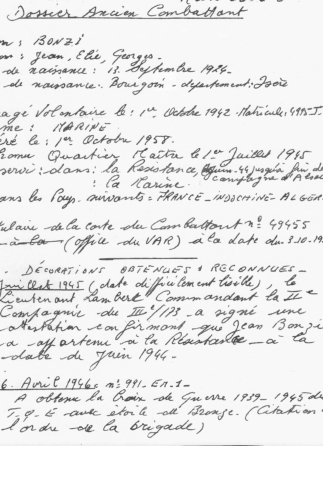 Dossier Ancien Combattant
m : BONZI
m : Jean, Elie, Georges.
de naissance : 13 Septembre 1924.
de naissance. Bourgoin - département : Isère
agé Volontaire le : 1er Octobre 1942. Matricule :
me : MARINE
éré le : 1er Octobre 1958.
omu Quartier Maître le 1er Juillet 1945
servi : dans : la Résistance (Juin 44 jusqu'à fin de
: la Marine. Campagne d'Alsa
ans les Pays suivants = FRANCE - INDOCHINE - ALGER
tulaire de la carte du Combattant n° 49455
(office du VAR) à la date du 3.10.19
- DÉCORATIONS OBTENUES & RECONNUES -
Juillet 1945 (date difficilement lisible), le
Lieutenant Lambert Commandant la IIe
Compagnie du IIIe/173 a signé une
attestation confirmant que Jean Bonzi
a appartenu à la Résistance à la
date de Juin 1944.
6. Avril 1946 = n° 991. En. 1 -
A obtenu la Croix de Guerre 1939-1945 de
T.O.E avec étoile de Bronze. (Citation
l'ordre de la brigade)